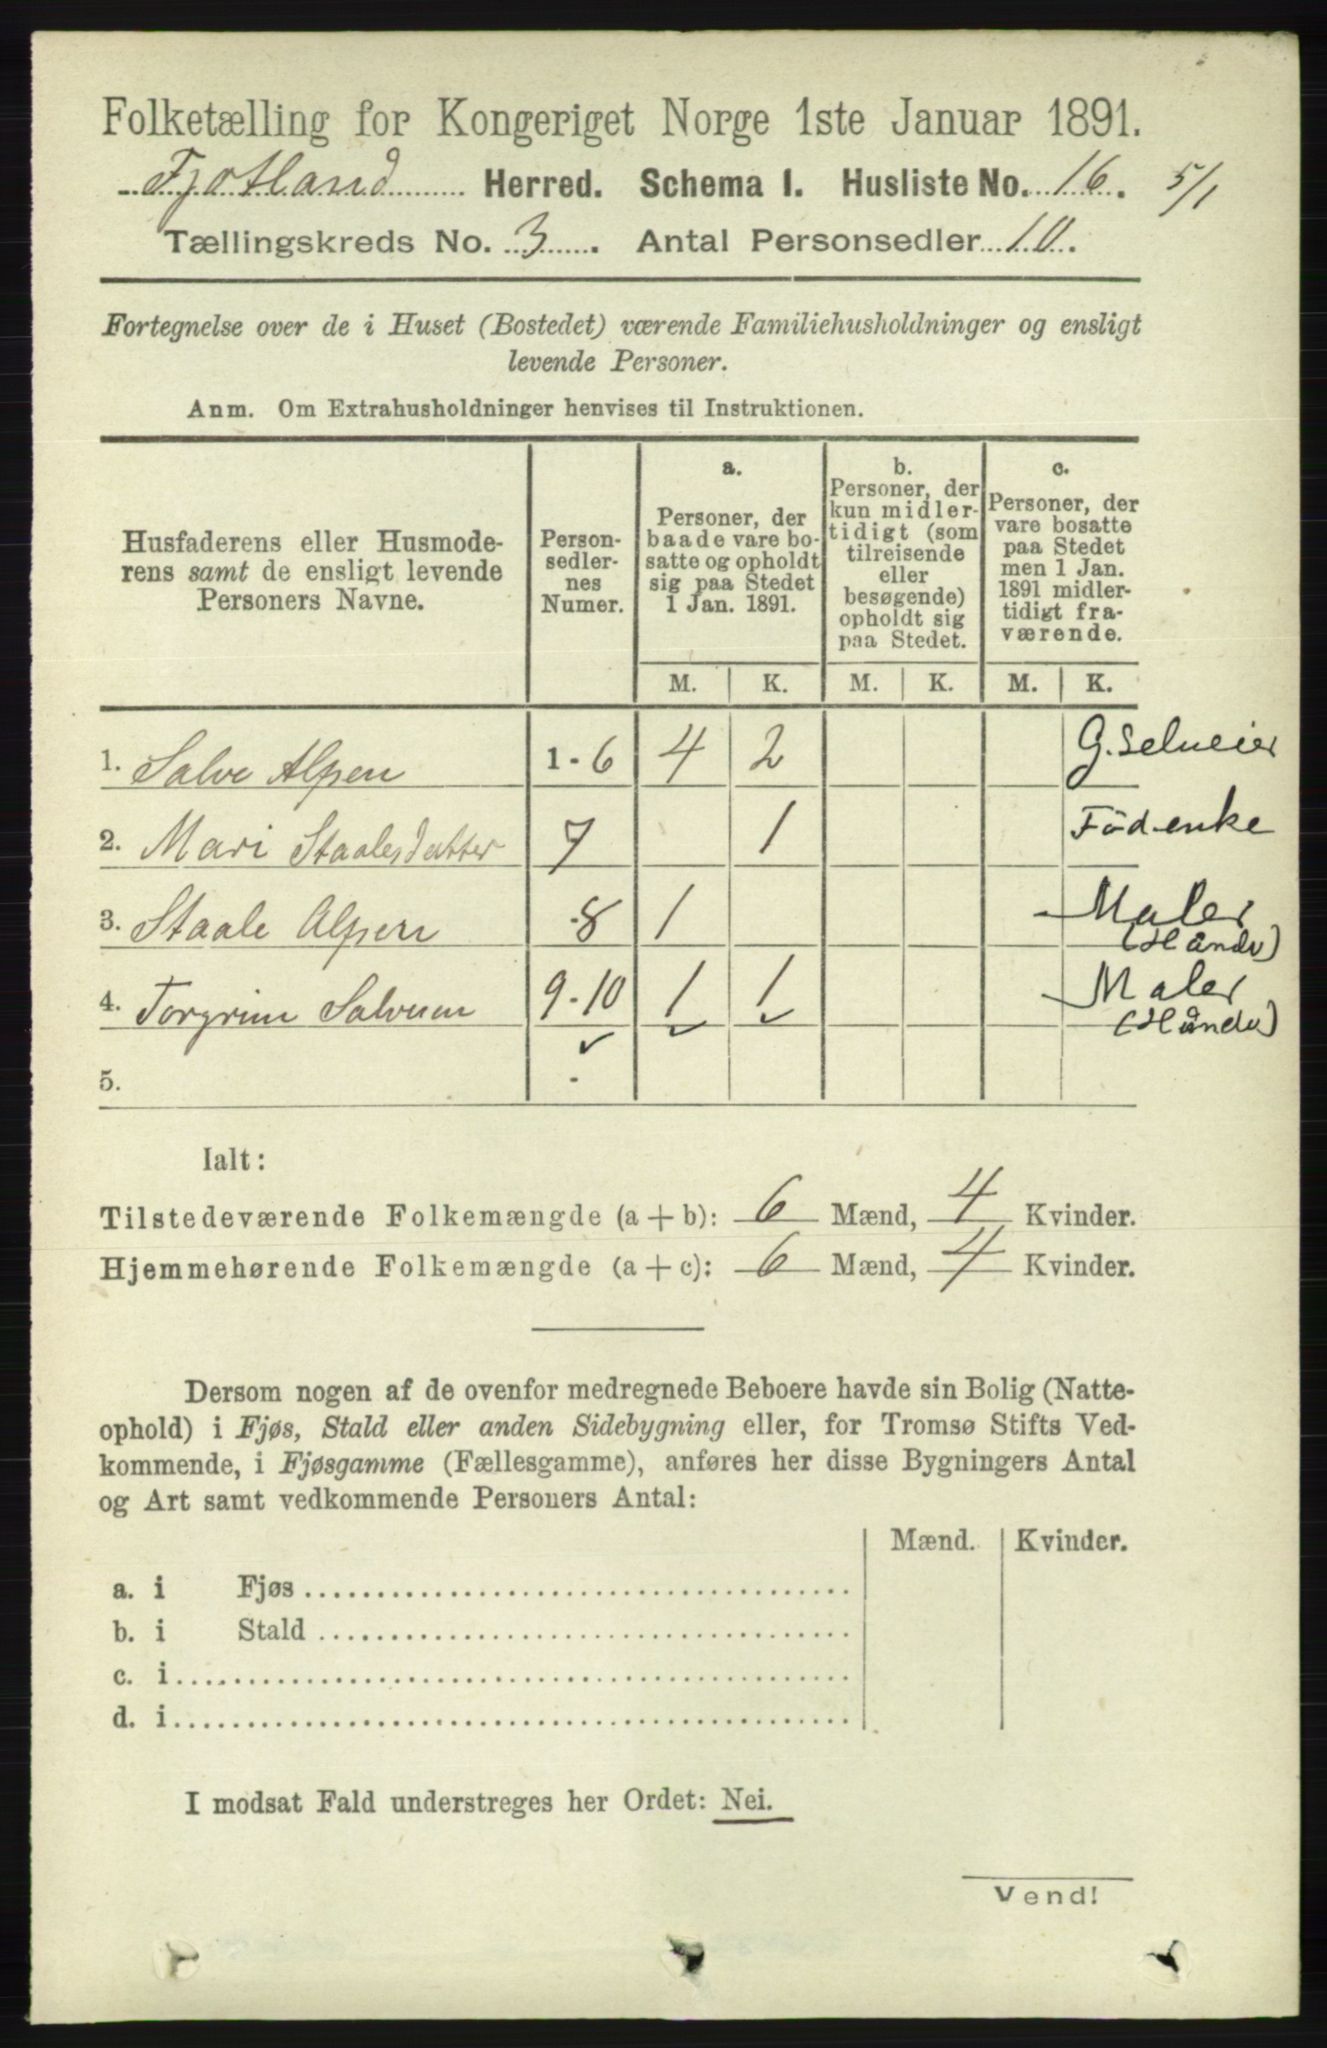 Folketælling for Kongeriget Norge 1ste Januar 1891.
Fjotland Herred. Schema I. Husliste No. 16. 5/1
Tællingskreds No. 3. Antal Personsedler 10.
Fortegnelse over de i Huset (Bostedet) værende Familiehusholdninger og ensligt
levende Personer.
Anm. Om Extrahusholdninger henvises til Instruktionen.
Husfaderens eller Husmode-
rens samt de ensligt levende
Personers Navne.
Person-
sedler-
nes
Numer.
a.
Personer, der
baade vare bo-
satte og opholdt
sig paa Stedet
1 Jan. 1891.
b.
Personer, der
kun midler-
tidigt (som
tilreisende
eller
besøgende)
opholdt sig
paa Stedet.
c.
Personer, der
vare bosatte
paa Stedet
men 1 Jan.
1891 midler-
tidigt fra-
værende.
M. K. M. K. M. K.
1. Salve Alpen 1-6 4 2 G. Selveier
2. Mari Staalesdatter 7 1 Föd.enke
3. Staale Alpen -8 1 Maler
(Håndv)
4. Torgrim Salvesen 9-10 1 1 Maler
(Håndv)
5.
Ialt:
Tilstedeværende Folkemængde (a + b): 6 Mænd, 4 Kvinder.
Hjemmehørende Folkemængde (a + c): 6 Mænd, 4 Kvinder.
Dersom nogen af de ovenfor medregnede Beboere havde sin Bolig (Natte-
ophold) i Fjøs, Stald eller anden Sidebygning eller, for Tromsø Stifts Ved-
kommende, i Fjøsgamme (Fællesgamme), anføres her disse Bygningers Antal
og Art samt vedkommende Personers Antal:
Mænd. Kvinder.
a. i Fjøs
b. i Stald
c. i
d. i
I modsat Fald understreges her Ordet: Nei.
Vend!